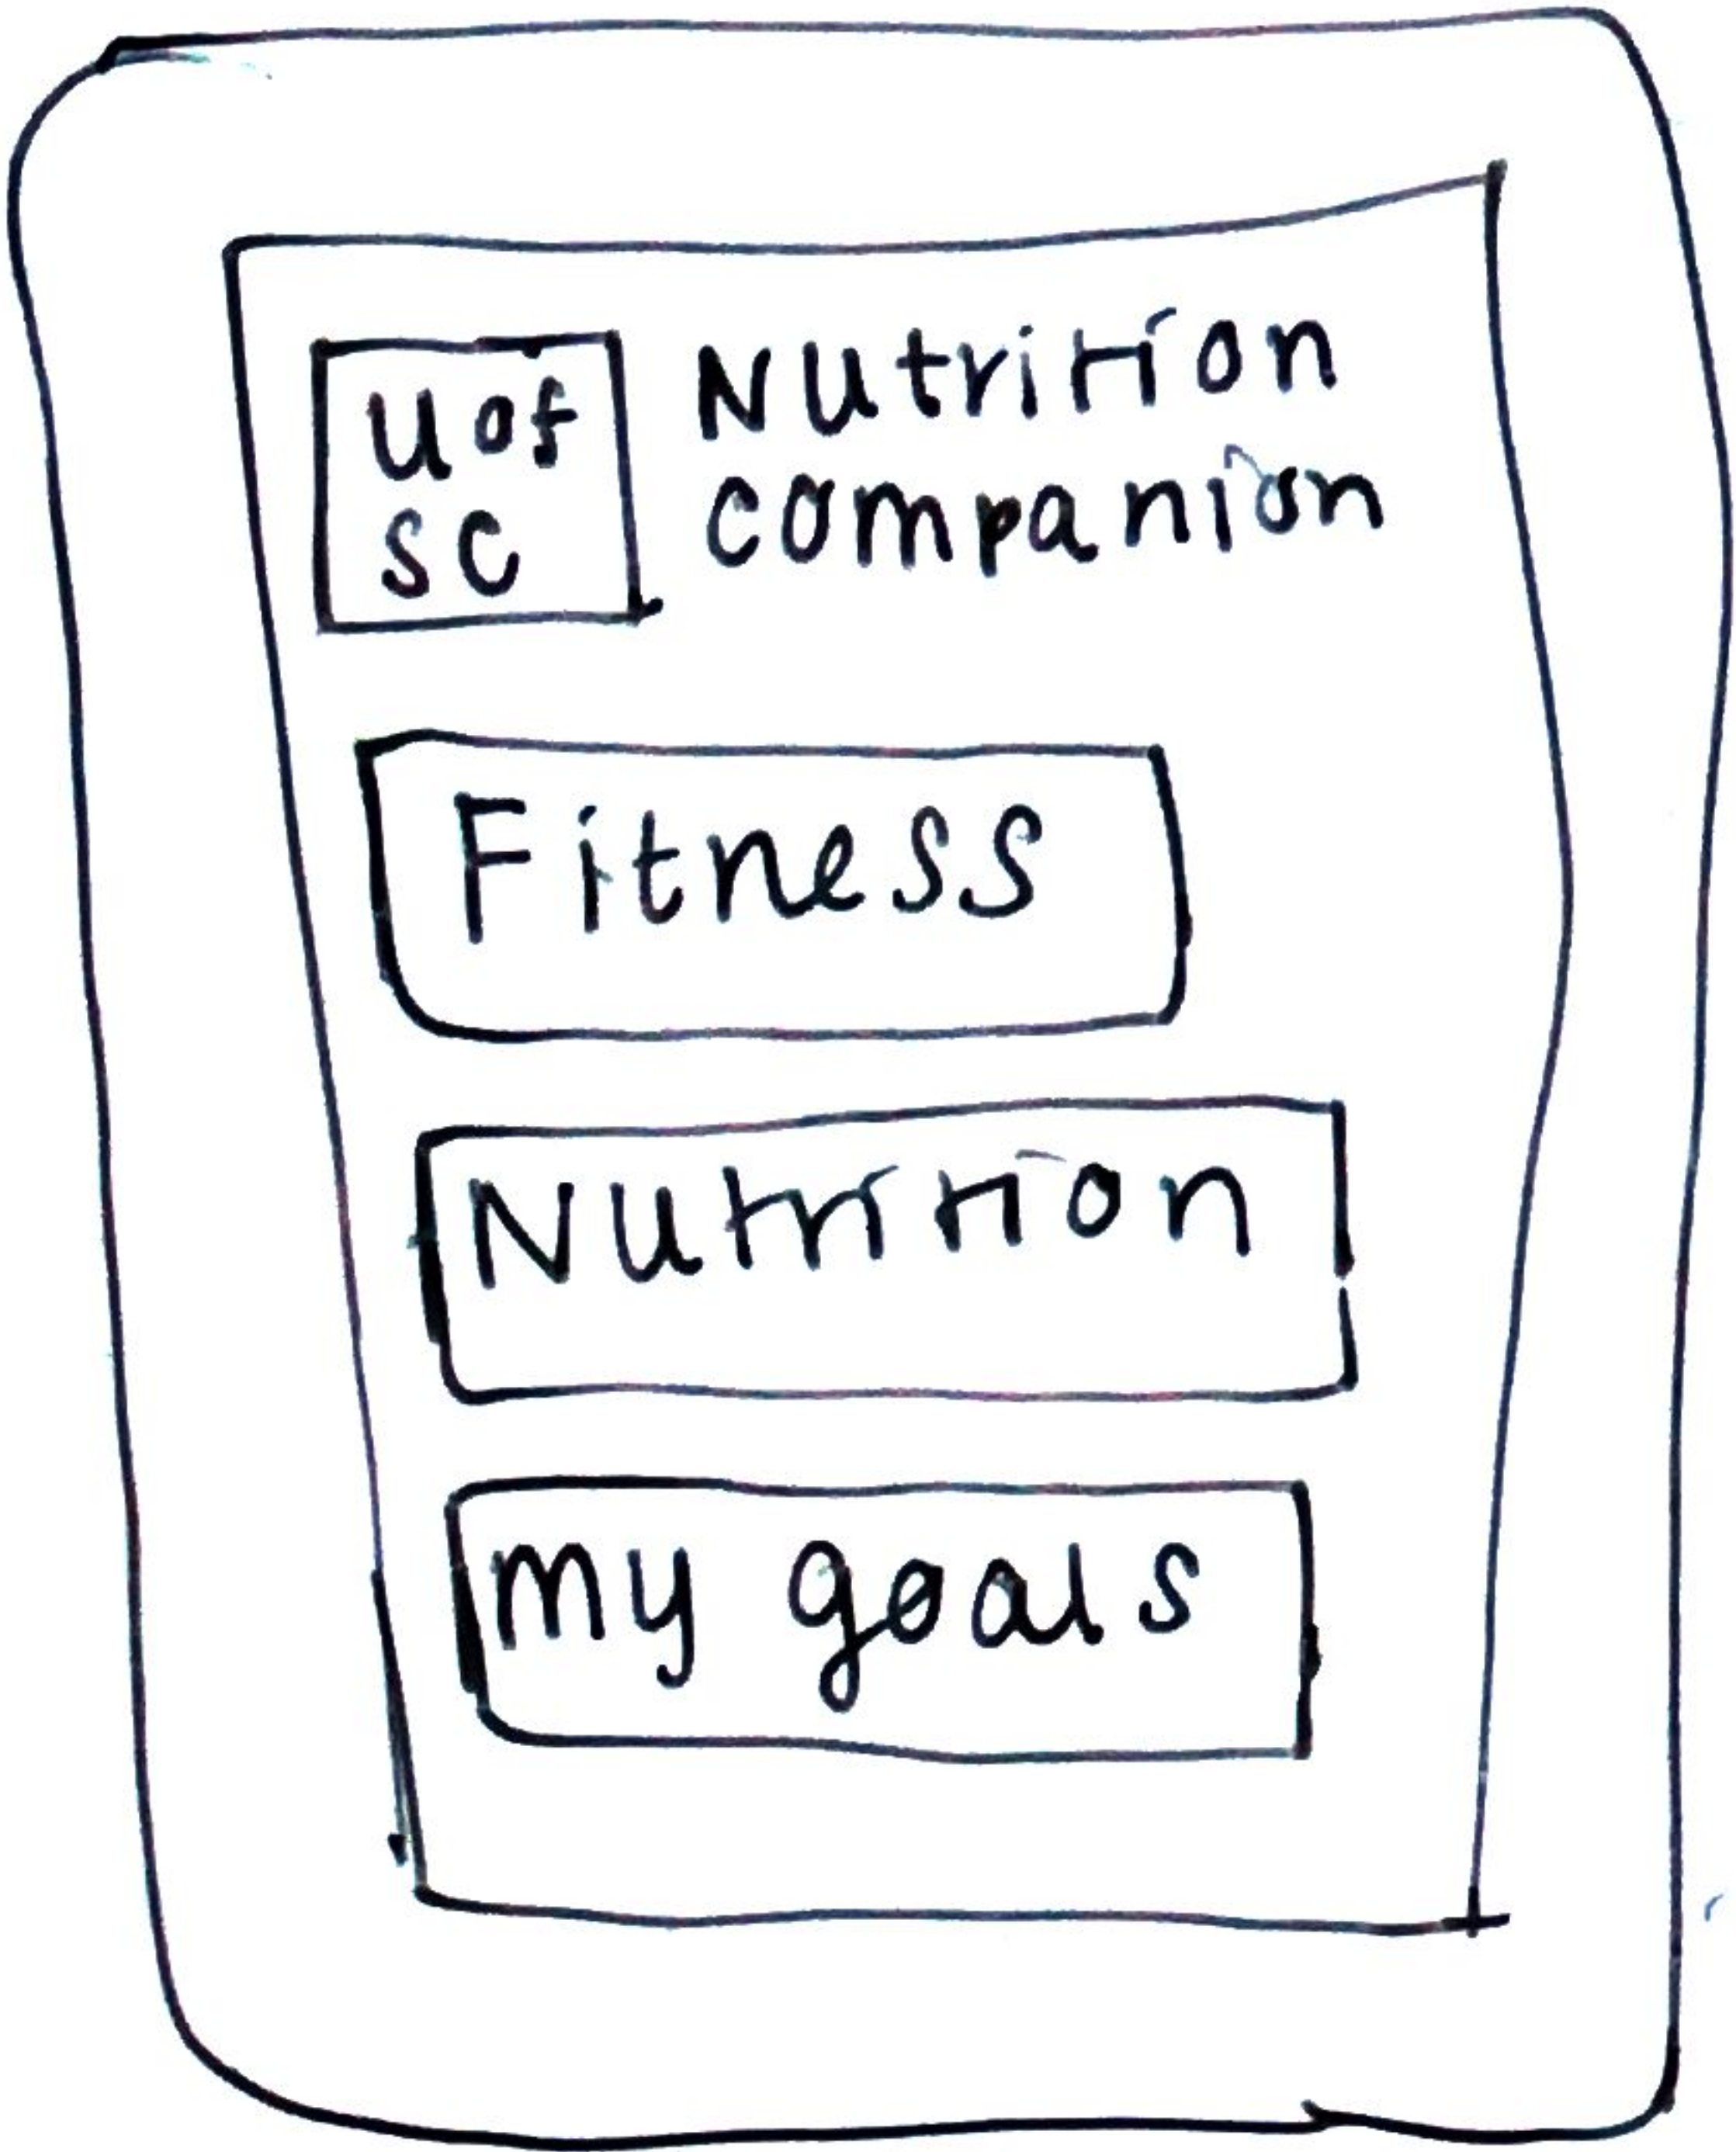 U of
SC
Nutrition
companion
Fitness
Nutrition
my goals